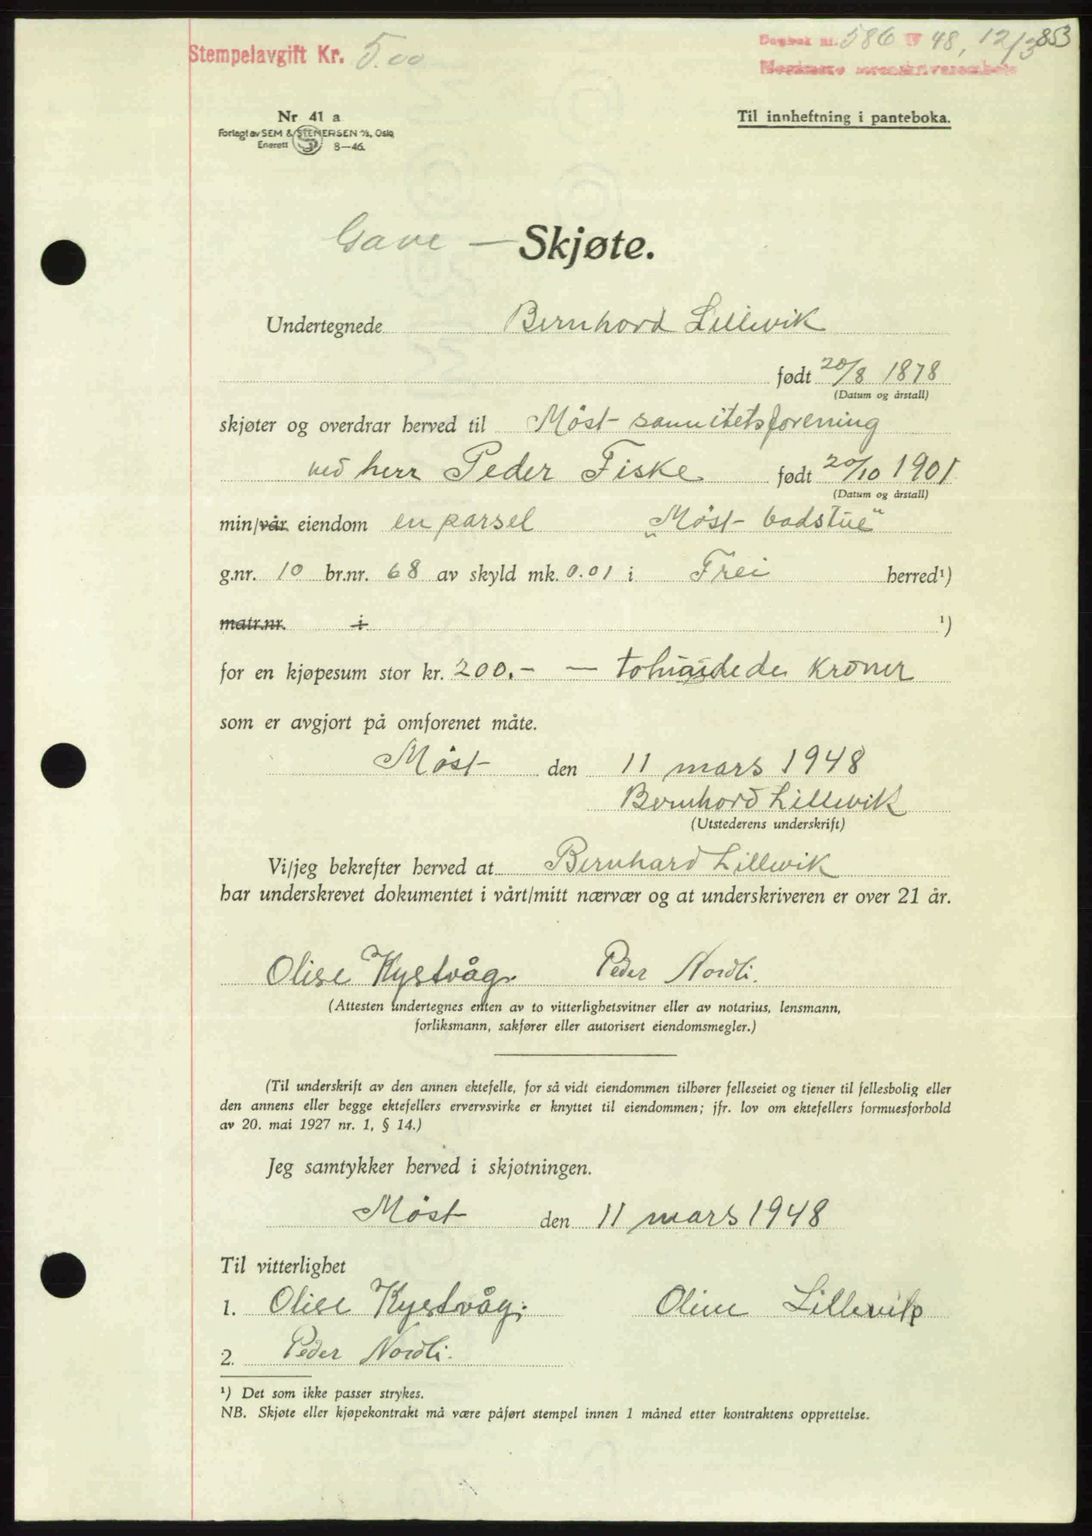 Stempelavgift Kr. 5.00
Dagbok nr. 586 48, 12/3 853
Nordmøre sorenskriverembete
Nr 41 a
Forlagt av SEM & STENERSEN A/S, Oslo
Enerett 8—46.
Til innheftning i panteboka.
Gave — Skjøte.
Undertegnede Bernhard Lillevik
født 20/8 1878
(Datum og årstall)
skjøter og overdrar herved til Møst sanitetsforening
ved herr Peder Fiske født 20/10 1901
(Datum og årstall)
min/vår eiendom en parsel „Møst badstue"
g.nr. 10 br.nr. 68 av skyld mk. 0.01 i Frei herred¹)
matr.nr. i ¹)
for en kjøpesum stor kr. 200.- — tohundrede kroner
som er avgjort på omforenet måte.
Møst den 11 mars 1948
Bernhard Lillevik
(Utstederens underskrift)
Vi/jeg bekrefter herved at Bernhard Lillevik
har underskrevet dokumentet i vårt/mitt nærvær og at underskriveren er over 21 år.
Olise Kystvåg. Peder Nordli.
(Attesten undertegnes enten av to vitterlighetsvitner eller av notarius, lensmann,
forliksmann, sakfører eller autorisert eiendomsmegler.)
(Til underskrift av den annen ektefelle, for så vidt eiendommen tilhører felleseiet og tjener til fellesbolig eller
den annens eller begge ektefellers ervervsvirke er knyttet til eiendommen; jfr. lov om ektefellers formuesforhold
av 20. mai 1927 nr. 1, § 14.)
Jeg samtykker herved i skjøtningen.
Møst den 11 mars 1948
Til vitterlighet
1. Olise Kystvåg. Oline Lillevik
2. Peder Nordli.
¹) Det som ikke passer strykes.
NB. Skjøte eller kjøpekontrakt må være påført stempel innen 1 måned etter kontraktens opprettelse.